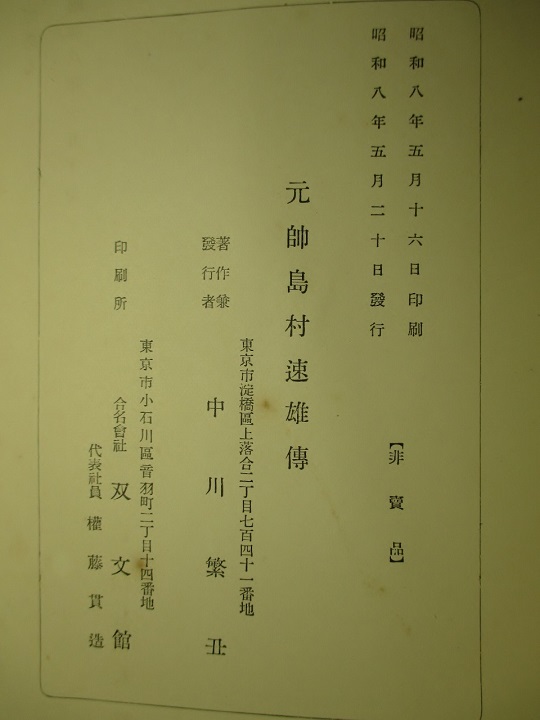 昭和八年五月十六日印刷
昭和八年五月二十日發行
【非賣品】
元帥島村速雄傳
著作兼
發行者
東京市淀橋區上落合二丁目七百四十一番地
中川繁丑
印刷所
東京市小石川區音羽町二丁目十四番地
合名會社 双文館
代表社員 權藤貫造